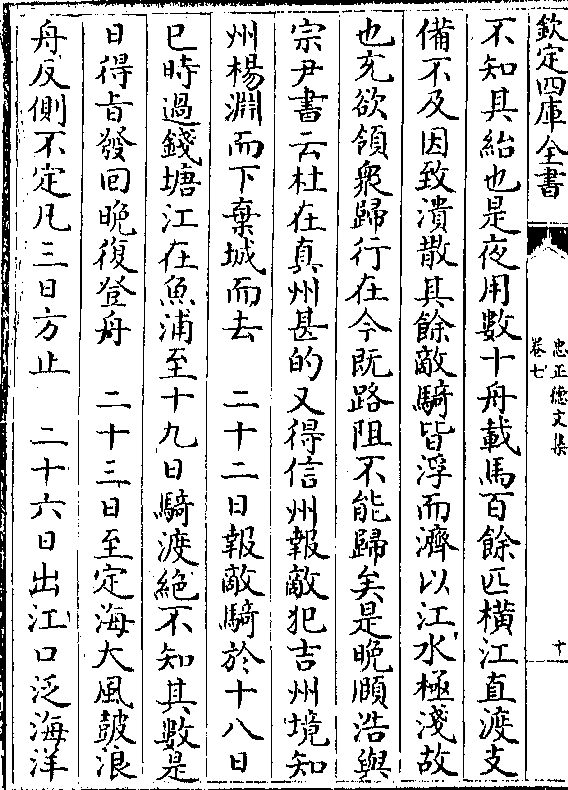 欽定四庫全書
忠正德文集
卷七
十
不知其紿也是夜用數十舟載馬百餘匹橫江直渡支
備不及因致潰散其餘敵騎皆浮而濟以江水極淺故
也充欲領衆歸行在今既路阻不能歸矣是晩頤浩與
宗尹書云杜在真州甚的又得信州報敵犯吉州境知
州楊淵而下棄城而去　二十二日報敵騎於十八日
巳時過錢塘江在魚浦至十九日騎渡絶不知其數是
日得旨發回晚復登舟　二十三日至定海大風皷浪
舟反側不定凡三日方止　二十六日出江口泛海洋